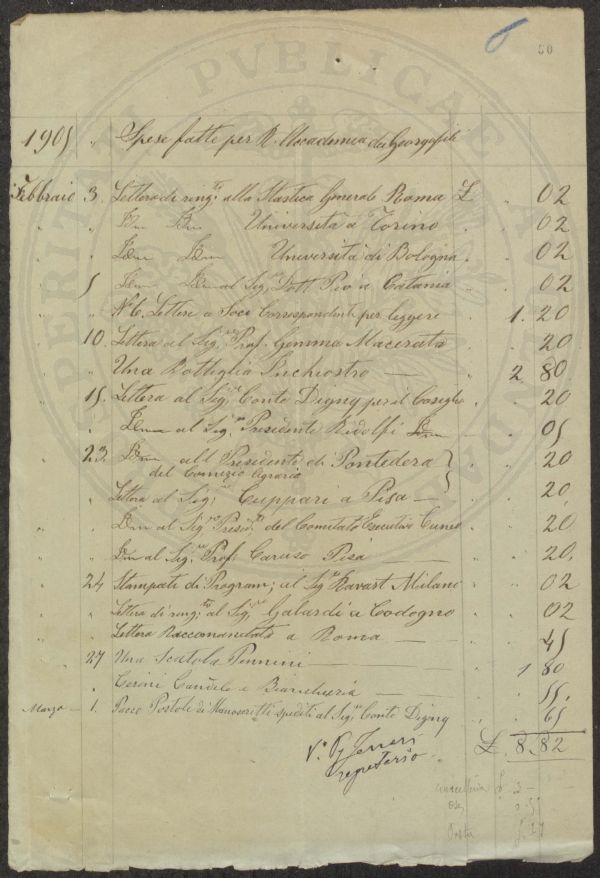 50
1905 " Spese fatte per R. Accademia dei Georgofili
Febbraio 3. Lettera di ring.to alla Statica Generale Roma £ " 02
" " Idem Idem Università a Torino " . 02
" " Idem Idem Università di Bologna . " 02
" 5 Idem Idem al Sig.re Dott. Pio a Catania " 02
" N. 6. Lettere a Soci Corrispondenti per leggere . 1. 20
" 10. Lettera al Sig.re Prof. Gemma Macerata . 20
" Una Bottiglia Inchiostro — . 2 80
" 15. Lettera al Sig.re Conte Digny per il Consiglio . 20
" Idem al Sig.re Presidente Ridolfi Idem . 05
" 23. Idem al Presidente di Pontedera } . 20
del Comizio Agrario
" Lettera al Sig.re Cuppari a Pisa — } . 20
" " Idem al Sig.re Presid.te del Comitato Esecutivo Cuneo . 20
" " Idem al Sig.re Prof. Caruso Pisa — . 20.
" 24 Stampati di Program; al Sig.re Ravast Milano . 02
" Lettera di ring.to al Sig.re Galardi a Codogno . 02
Lettera Raccomandata a Roma — . 45
" 27 Una Scatola Pennini — . 1 80
" Cerini Candele e — . 55.
Marzo — 1. Pacco Postale di Manoscritti spediti al Sig.re Conte Digny . 65
£. 8.82
V.o
Segretario
cancelleria £ 3 -
Posta